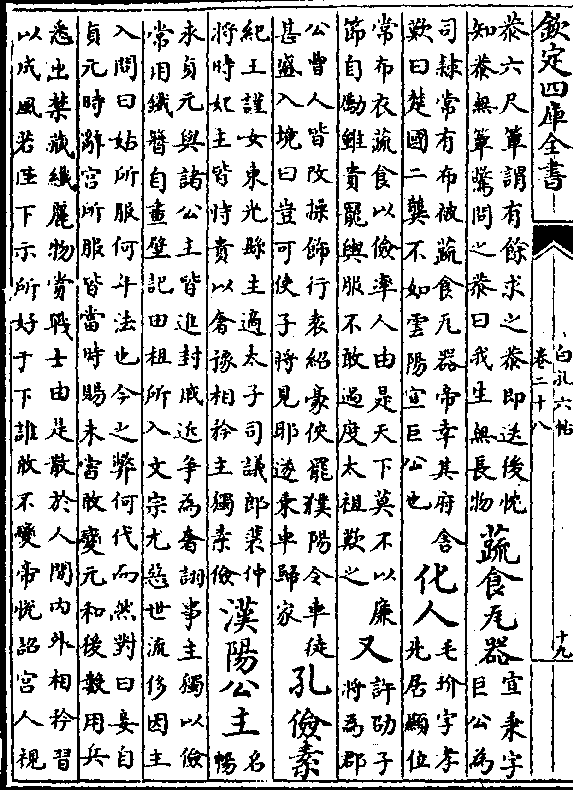 欽定四庫全書
白孔六帖
卷二十八
十九
恭六尺簟謂有餘求之恭即送後忱
知恭無簟驚問之恭曰我生無長物
蔬食瓦器
宣秉字
巨公為
司隸常有布被蔬食瓦器帝幸其府舍
歎曰楚國二龔不如雲陽宣巨公也
化人
毛玠字孝
先居顯位
常布衣蔬食以儉率人由是天下莫不以廉
節自勵雖貴寵輿服不敢過度太祖歎之
又
許劭子
將為郡
公曹人皆改操飾行袁紹豪俠罷濮陽令車徒
甚盛入境曰豈可使子將見耶遂乘車歸家
孔儉素
紀王謹女東光縣主適太子司議郎裴仲
將時妃主皆時貴以奢豫相矜主獨素儉
漢陽公主
名
暢
永貞元與諸公主皆進封戚近爭為奢詡事主獨以儉
常用鐵簪自畫壁記田租所入文宗尤惡世流侈因主
入問曰姑所服何斗法也今之弊何代而然對曰妾自
貞元時辭宮所服皆當時賜未嘗敢變元和後數用兵
悉出禁藏纖麗物賞戰士由是散於人間內外相矜習
以成風若陛下示所好于下誰敢不變帝悅詔宮人視